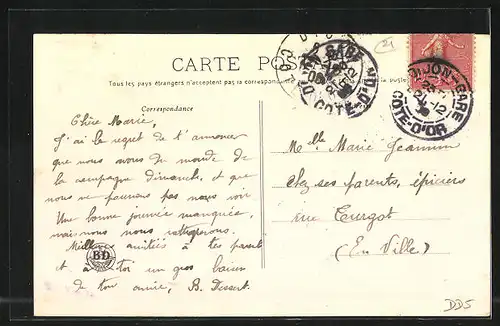 CARTE POSTALE
Tous les pays étrangers n'acceptent pas la correspondance
Correspondance
Chère Marie,
J'ai le regret de t'annoncer
que nous avons du monde de
la campagne dimanche, et que
nous ne pouvons pas nous voir
Une bonne journée manquée,
mais nous nous rattraperons.
Milles amitiés à tes parents
et à toi un gros baiser
de ton amie, B. Dessert.
BD
DIJON-GARE
CÔTE-D'OR
Melle Marie Jeannin
Chez ses parents, épiciers
rue Turgot
(En Ville)
DD5